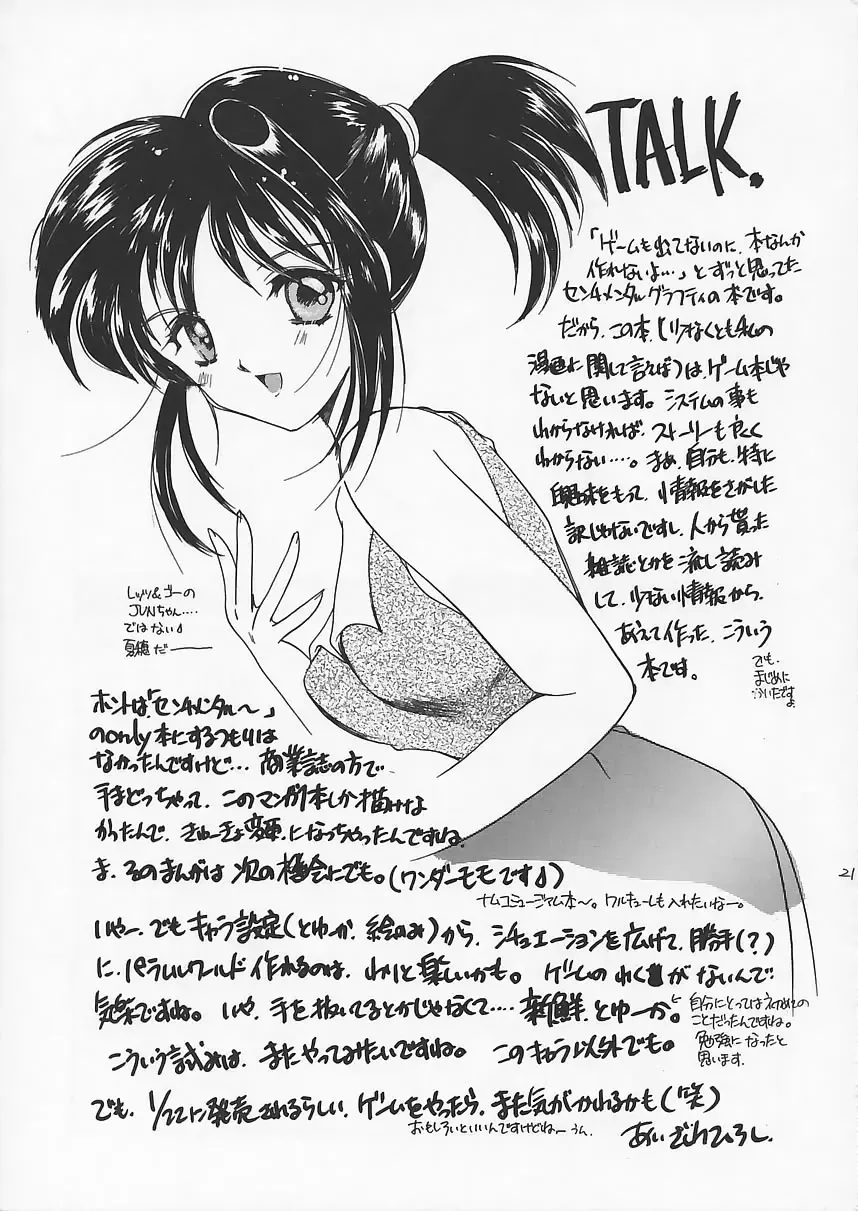 TALK.
「ゲームも出てないのに、本なんか
作れないよ…」とずっと思ってた
センチメンタルグラフティの本です。
だから、この本、(少なくとも私の
漫画に関して言えば)は、ゲーム本じゃ
ないと思います。システムの事も
わからなければ、ストーリーも良く
わからない…。まぁ、自分も、特に
興味をもって、情報をさがした
訳じゃないですし、人から貰った
雑誌とかを流し読み
して、少ない情報から、
あえて作った、こういう
本です。
でも、
まじめに
かいたですよ
レッツ&ゴーの
JUNちゃん....
ではない♪
夏穂だ――
ホントは「センチメンタル〜」
のonly本にするつもりは
なかったんですけど… 商業誌の方で
手まどっちゃって、このマンガ1本しか描けな
かったんで、きゅーきょ変更、になっちゃったんですね。
ま、そのまんがは次の機会にでも。(ワンダーモモです♪)
ナムコミュージアム本〜。ワルキューレも入れたいなー。
いやー、でもキャラ設定(とゆーか、絵のみ)から、シチュエーションを広げて、勝手(?)
に、パラレルワルド作れるのは、わりと楽しいかも。ゲームのわくがないんで
気楽ですね。いや、手を抜いてるとかじゃなくて....新鮮、とゆーか。
自分にとってははじめての
ことだったんですね。
勉強になったと
思います。
こういう試みは、またやってみたいですね。このキャラ以外でも。
でも、1/22に発売されるらしい、ゲームをやったら、また気がかわるかも(笑)
おもしろいといいんですけどねーうん。
あいざわひろし
21